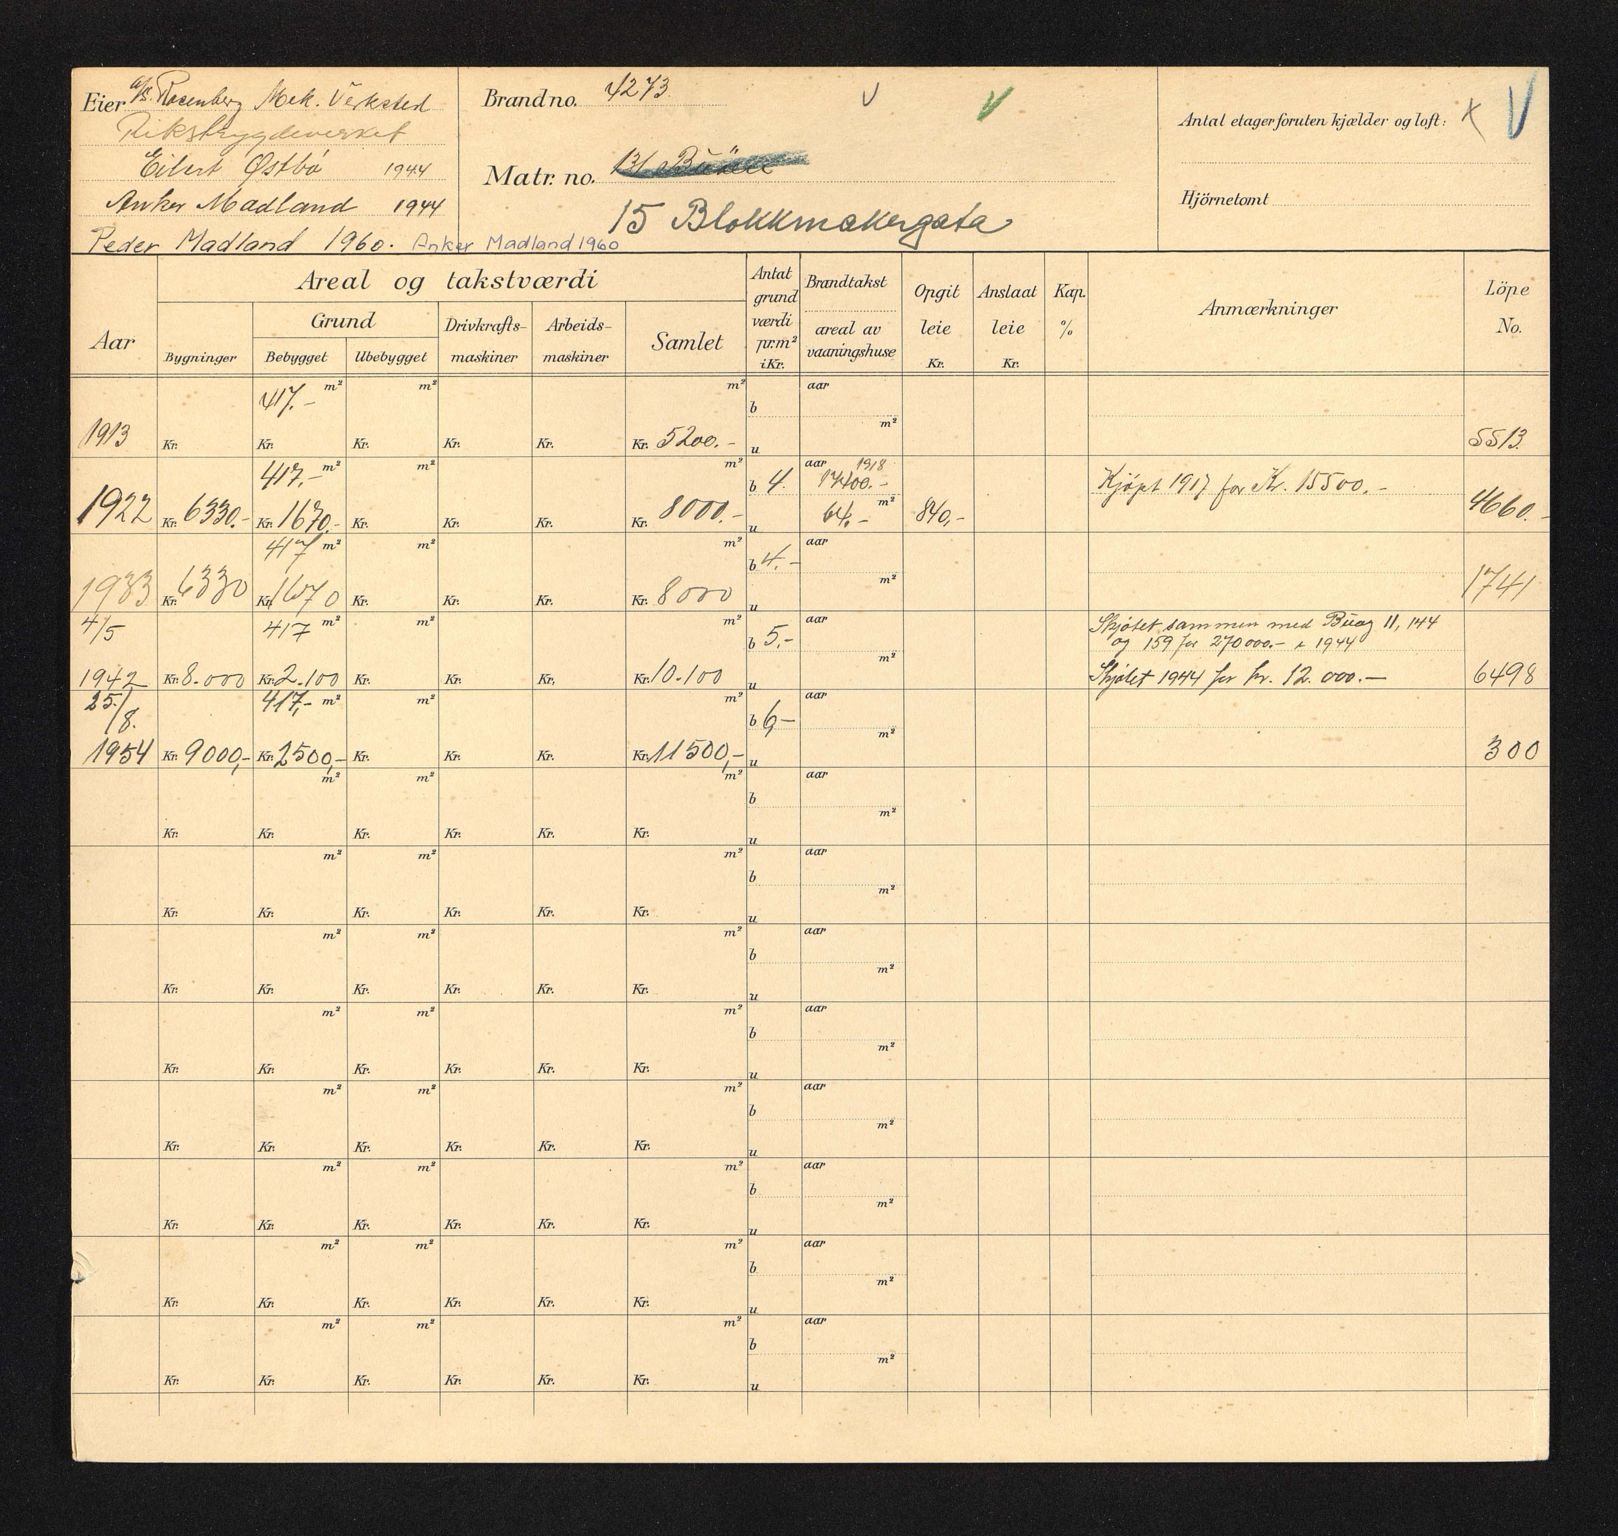 Eier A/S. Rosenberg Mek. Verksted
Rikstrygdeverket
Eilert Østbø 1944
Anker Madland 1944
Peder Madland 1960. Anker Madland 1960
Brand no. 4273
Matr. no. 131
15 Blokkmakergata
Antal etager foruten kjælder og loft:
Hjörnetomt
Aar
Areal og takstværdi
Bygninger
Grund
Bebygget Ubebygget
Drivkrafts-maskiner
Arbeids-maskiner
Samlet
Antat grund værdi pr. m² i Kr.
Brandtakst
areal av vaaningshuse
Opgit leie Kr.
Anslaat leie Kr.
Kap. %
Anmærkninger
Löpe No.
417.- m² m² m² b aar m²
1913 Kr. Kr. Kr. Kr. Kr. Kr. 5200.- u 5513.
417.- m² m² m² b 4. aar 1918 17400.- Kjøpt 1917 for Kr. 15500.-
1922 Kr. 6330.- Kr. 1670.- Kr. Kr. Kr. Kr. 8000.- u 64.- m² 840,- 4660.-
417 m² m² m² b 4.- aar m²
1933 Kr. 6330 Kr. 1670 Kr. Kr. Kr. Kr. 8000 u 1741
4/5 417 m² m² m² b 5.- aar m² Skjøtet sammen med Buag 11, 144
og 159 for 270000.- i 1944
1942 Kr. 8.000 Kr. 2.100 Kr. Kr. Kr. Kr. 10.100 u Skjøtet 1944 for kr. 12.000.- 6498
25./8. 417,- m² m² m² b 6,- aar m²
1954 Kr. 9000,- Kr. 2500,- Kr. Kr. Kr. Kr. 11500,- u 300
m² m² m² b aar m²
Kr. Kr. Kr. Kr. Kr. Kr. u
m² m² m² b aar m²
Kr. Kr. Kr. Kr. Kr. Kr. u
m² m² m² b aar m²
Kr. Kr. Kr. Kr. Kr. Kr. u
m² m² m² b aar m²
Kr. Kr. Kr. Kr. Kr. Kr. u
m² m² m² b aar m²
Kr. Kr. Kr. Kr. Kr. Kr. u
m² m² m² b aar m²
Kr. Kr. Kr. Kr. Kr. Kr. u
m² m² m² b aar m²
Kr. Kr. Kr. Kr. Kr. Kr. u
m² m² m² b aar m²
Kr. Kr. Kr. Kr. Kr. Kr. u